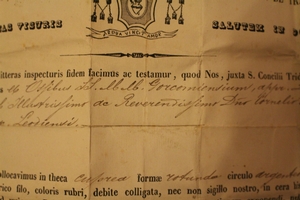 AS VISURIS
SALUTEM IN D
litteras inspecturis fidem facimus ac testamur, quod Nos, juxta S. Concilii Tri
Ossibus SS. M. M. Gorcomiensium, appro
Illustrissimo ac Reverendissimo Dno Cornelio
Leodiensi
ollocavimus in theca cuprea formæ rotunda circulo argent
rico filo, coloris rubri, debite colligata, nec non sigillo nostro, in cera hi